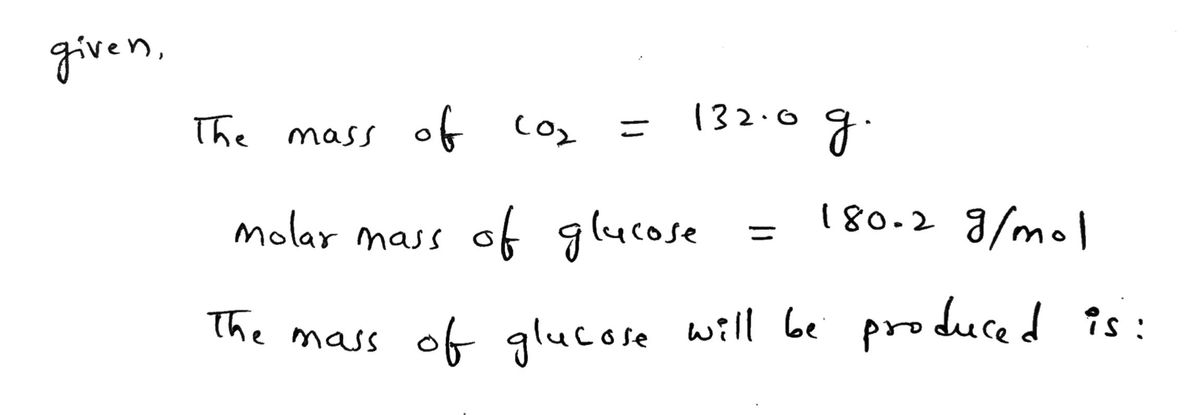 given,
The mass of CO2 = 132.0 g.
molar mass of glucose = 180.2 g/mol
The mass of glucose will be produced is: